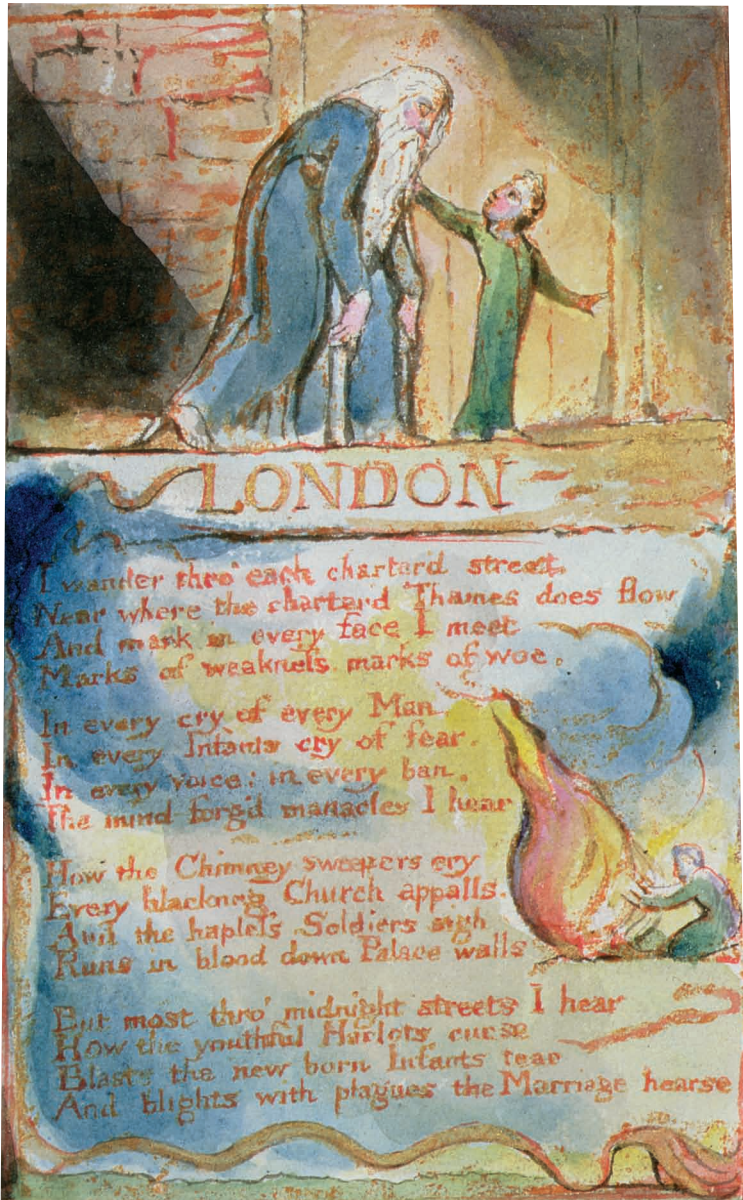 LONDON
I wander thro' each charterd street,
Near where the charterd Thames does flow
And mark in every face I meet
Marks of weakness marks of woe.
In every cry of every Man
In every Infants cry of fear.
In every voice; in every ban.
The mind forg'd manacles I hear
How the Chimney sweepers cry
Every blackning Church appalls.
And the hapless Soldiers sigh
Runs in blood down Palace walls
But most thro' midnight streets I hear
How the youthful Harlots curse
Blasts the new born Infants tear
And blights with plagues the Marriage hearse